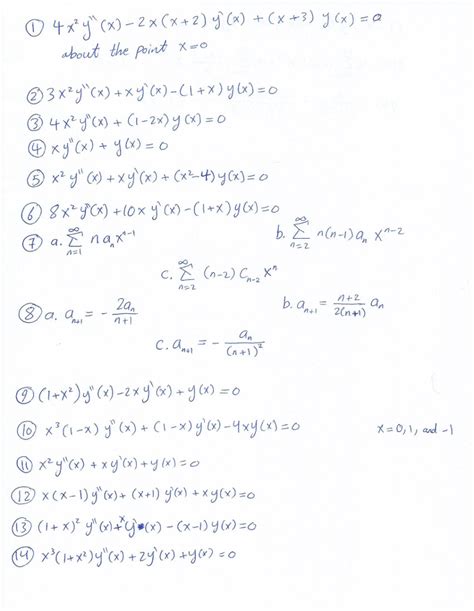 ① 4x²y''(x) - 2x(x+2) y'(x) + (x+3) y(x) = a
about the point x=0
② 3x²y''(x) + xy'(x) - (1+x) y(x) = 0
③ 4x²y''(x) + (1-2x) y(x) = 0
④ xy''(x) + y(x) = 0
⑤ x²y''(x) + xy'(x) + (x²-4) y(x) = 0
⑥ 8x²y''(x) + 10xy'(x) - (1+x) y(x) = 0
⑦ a. ∑_{n=1}^{∞} n a_n x^{n-1} b. ∑_{n=2}^{∞} n(n-1) a_n x^{n-2}
c. ∑_{n=2}^{∞} (n-2) C_{n-2} x^n
⑧ a. a_{n+1} = - 2a_n/(n+1) b. a_{n+1} = (n+2)/(2(n+1)) a_n
c. a_{n+1} = - a_n/(n+1)²
⑨ (1+x²) y''(x) - 2xy'(x) + y(x) = 0
⑩ x³(1-x) y''(x) + (1-x) y'(x) - 4xy(x) = 0 x = 0, 1, and -1
⑪ x²y''(x) + xy'(x) + y(x) = 0
⑫ x(x-1) y''(x) + (x+1) y'(x) + xy(x) = 0
⑬ (1+x)² y''(x) + xy'(x) - (x-1) y(x) = 0
⑭ x³(1+x²) y''(x) + 2y'(x) + y(x) = 0